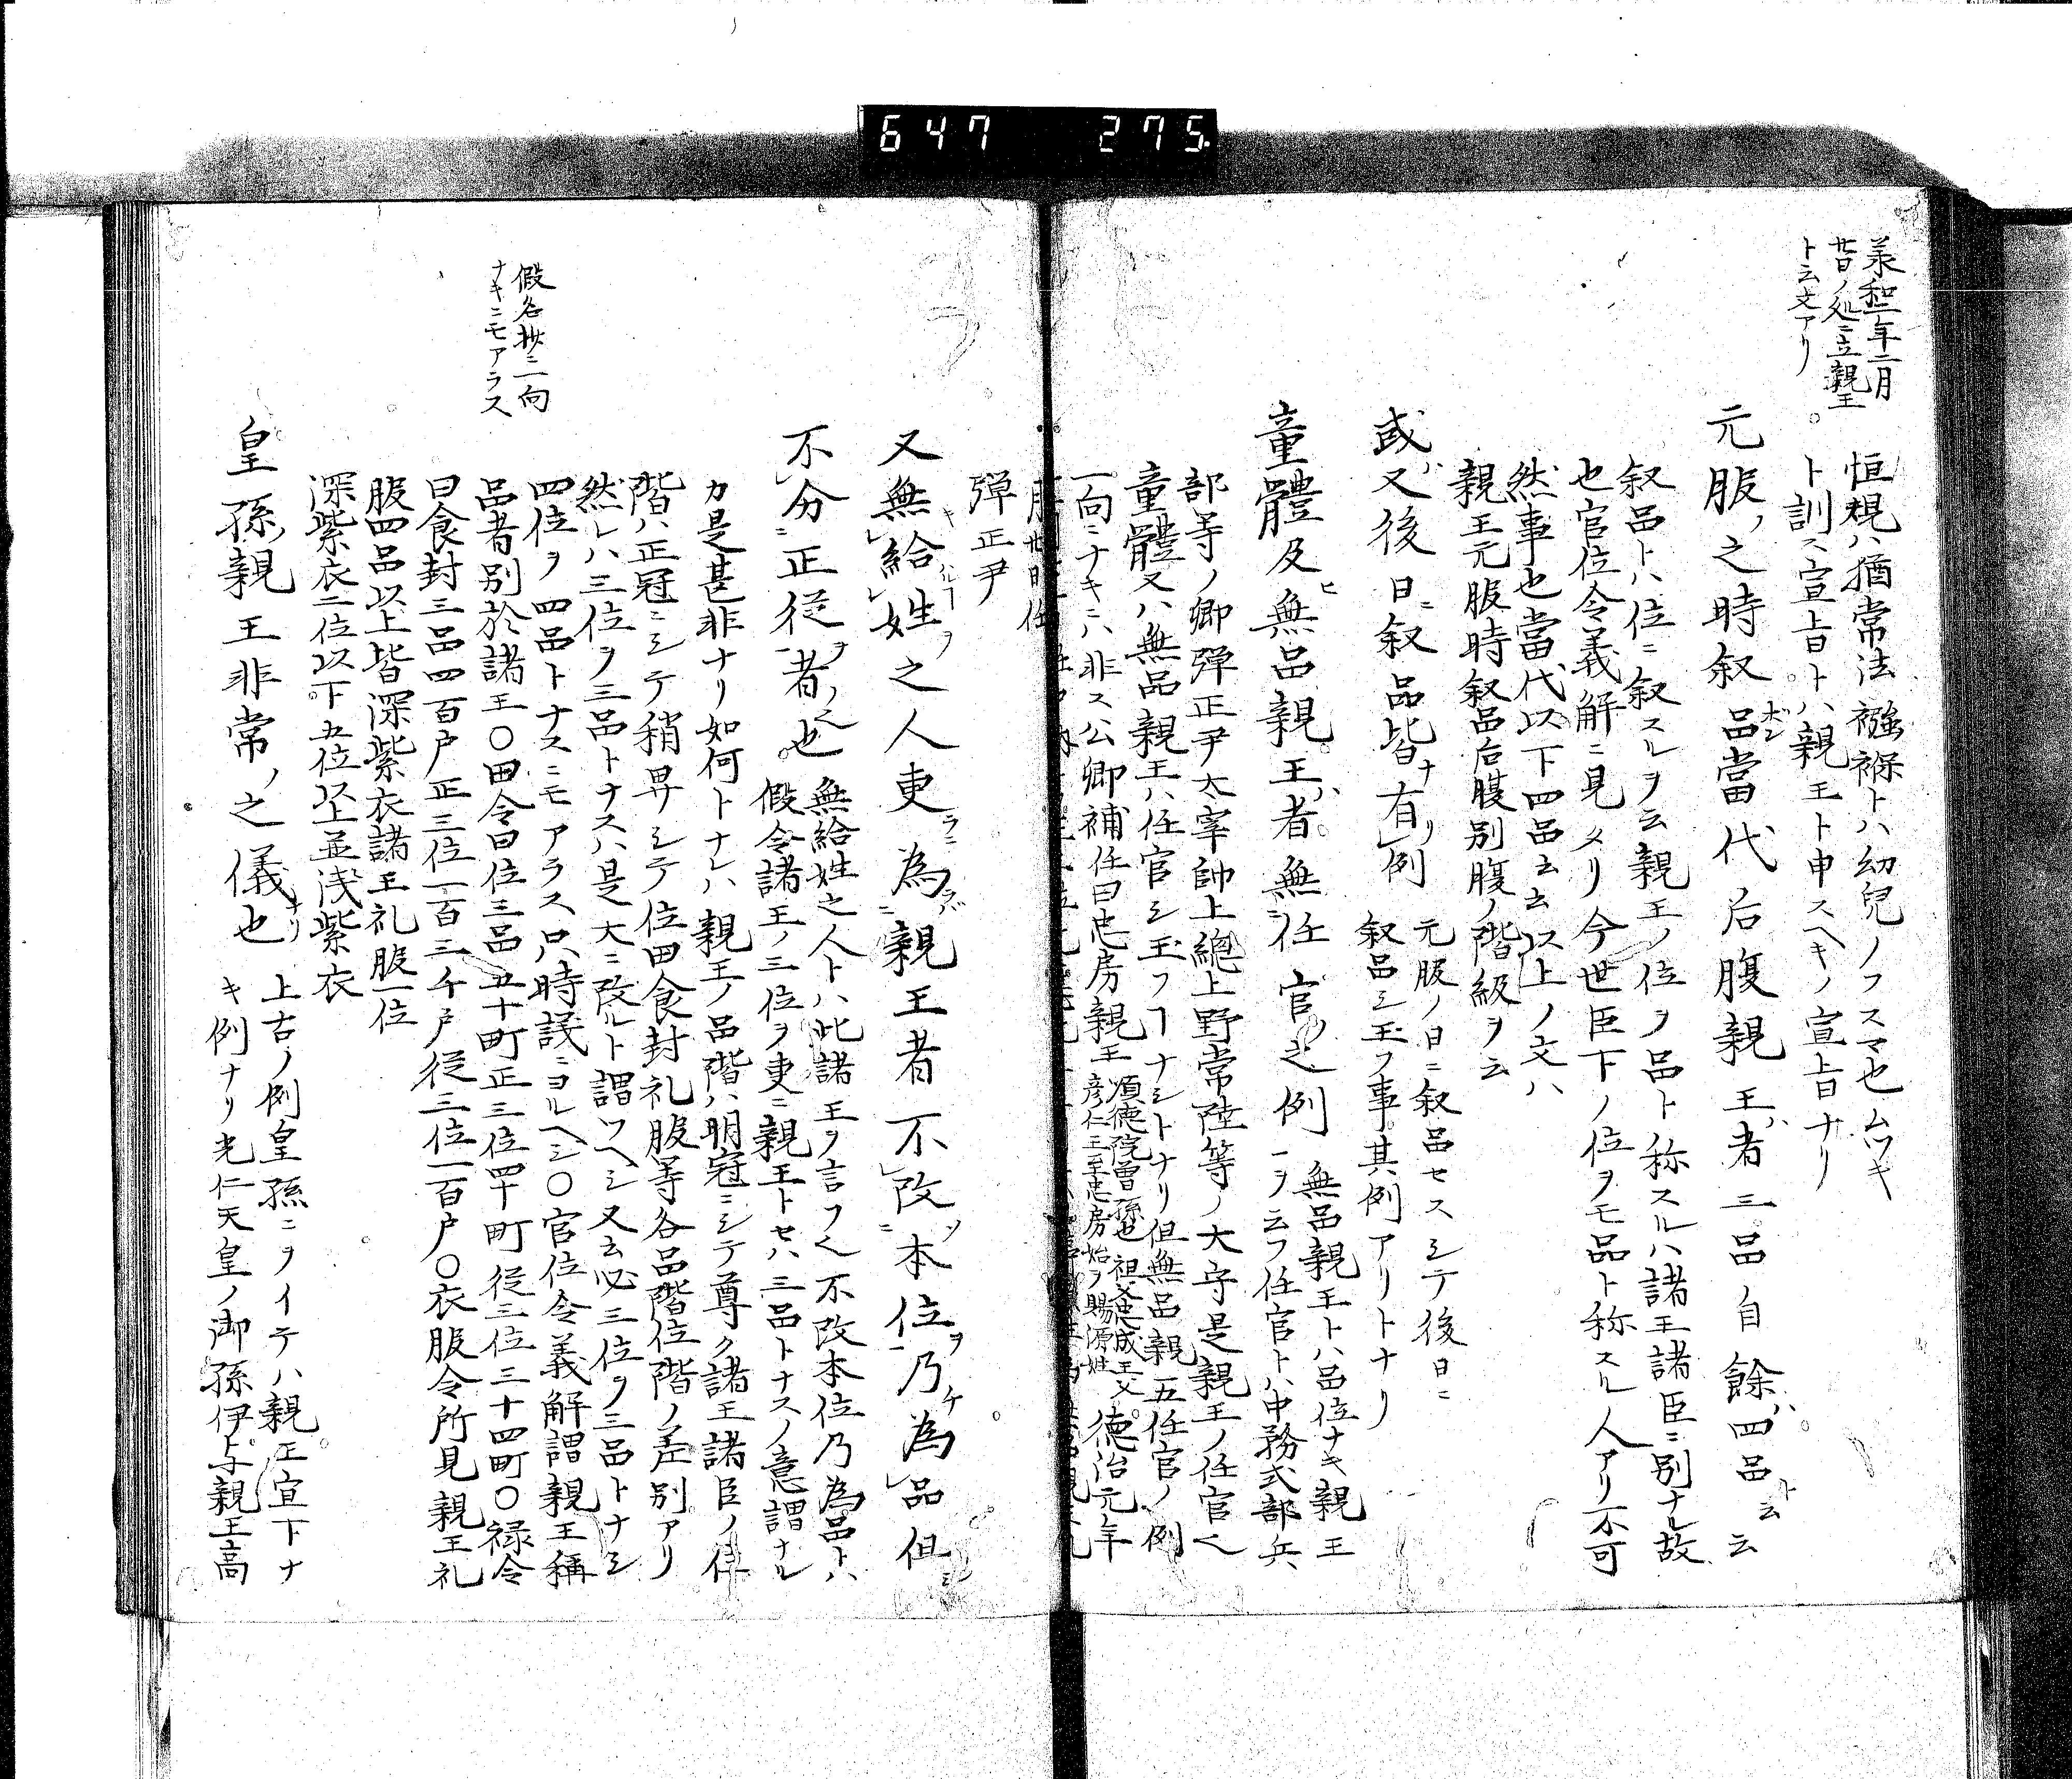 647 275.
承和二年二月
廿日ノ処ニ立親王
ト云文アリ
恒規ハ猶常法襁褓トハ幼兒ノフスマ也ムツキ
ト訓ス宣旨トハ親王ト申スヘキノ宣旨ナリ
元服ノ之時叙品當代后腹親王者ハ三品自餘ハ四品ト云云
叙品トハ位ニ叙スルヲ云親王ノ位ヲ品ト称スルハ諸王諸臣ニ別ナル故
也官位令義解ニ見メリ今世臣下ノ位ヲモ品ト称スル人アリ不可
然事也當代以下四品云云以上ノ文ハ
親王元服時叙品后腹別腹ノ階級ヲ云
或ハ又後日ニ叙品皆有ナリ例
元服ノ日ニ叙品セスシテ後日ニ
叙品シ玉フ事其例アリトナリ
童體及ヒ無品親王者ハ無ニ任官ノ之例
無品親王トハ品位ナキ親王
ヲ云フ任官トハ中務式部兵
部等ノ卿弾正尹太宰帥上總上野常陸等ノ大守是親王ノ任官也
童體又ハ無品親王ハ任官シ玉フヿナシトナリ但無品親王任官ノ例
一向ニナキニハ非ス公卿補任曰忠房親王
順徳院曾孫也祖父忠成王父
彦仁王至忠房始ノ賜源姓
徳治元年
弾正尹
又無給キハルヿ姓ヲ之人更ラニ為ラバ親王者不改ニ本位ヲ乃ケ為品但シ
不分ニ正従ヲ者ノ也
無給姓之人トハ此諸王ヲ言フ也不改本位乃為品トハ
假令諸王ノ三位ヲ更ニ親王トセハ三品トナスノ意謂ナル
カ是甚非ナリ如何トナレハ親王ノ品階ハ明冠ニシテ尊ク諸王諸臣ノ位
階ハ正冠ニシテ稍卑シテ位田食封礼服等各品階位階ノ差別アリ
然レハ三位ヲ三品トナスハ是大ニ改ルト謂ツヘシ又云必三位ヲ三品トナシ
四位ヲ四品トナスニモアラス只時議ニヨルヘシ〇官位令義解謂親王稱
品者別於諸王〇田令曰位三品五十町正三位四十町従三位三十四町〇禄令
曰食封三品四百戸正三位一百三千戸従三位一百戸〇衣服令所見親王礼
服四品以上皆深紫衣諸王礼服一位
深紫衣二位以下五位以上並浅紫衣
假名抄ニ一向
ナキニモアラス
皇孫ノ親王非常ノ之儀ナリ也
上古ノ例皇孫ニヲイテハ親王宣下ナ
キ例ナリ光仁天皇ノ御孫伊与親王高